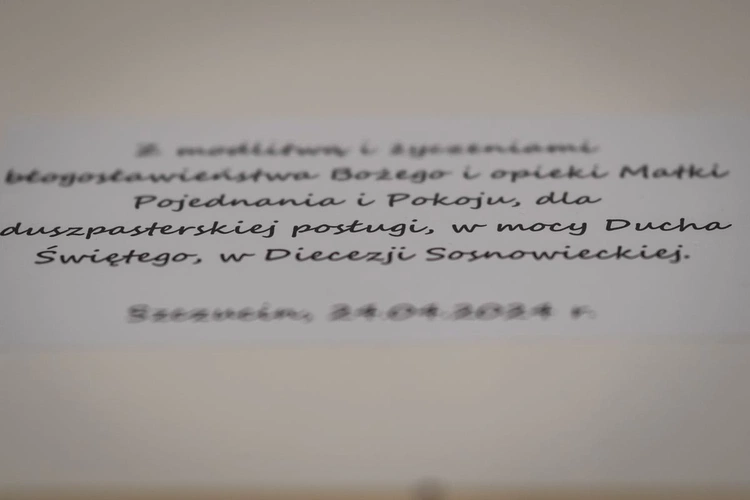 Z modlitwą i życzeniami
błogosławieństwa Bożego i opieki Matki
Pojednania i Pokoju, dla
duszpasterskiej posługi, w mocy Ducha
Świętego, w Diecezji Sosnowieckiej.
Szczucin, 24.04.2024 r.